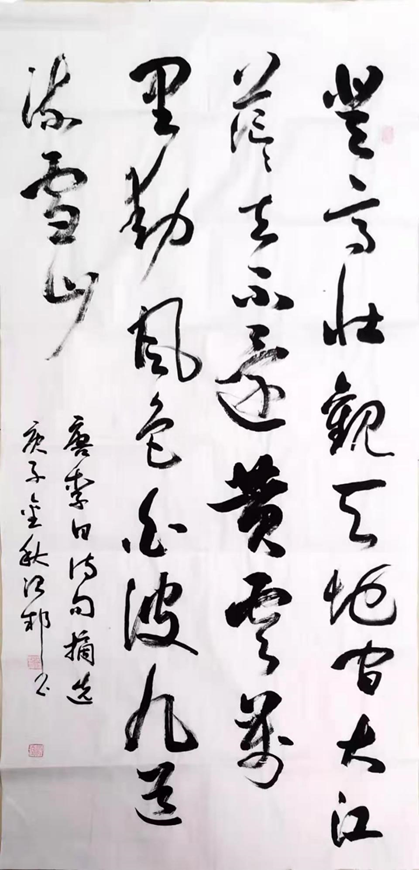 登高壮观天地间大江
茫茫去不还黄云万
里动风色白波九道
流雪山
唐李白诗句摘选
庚子金秋江邨书